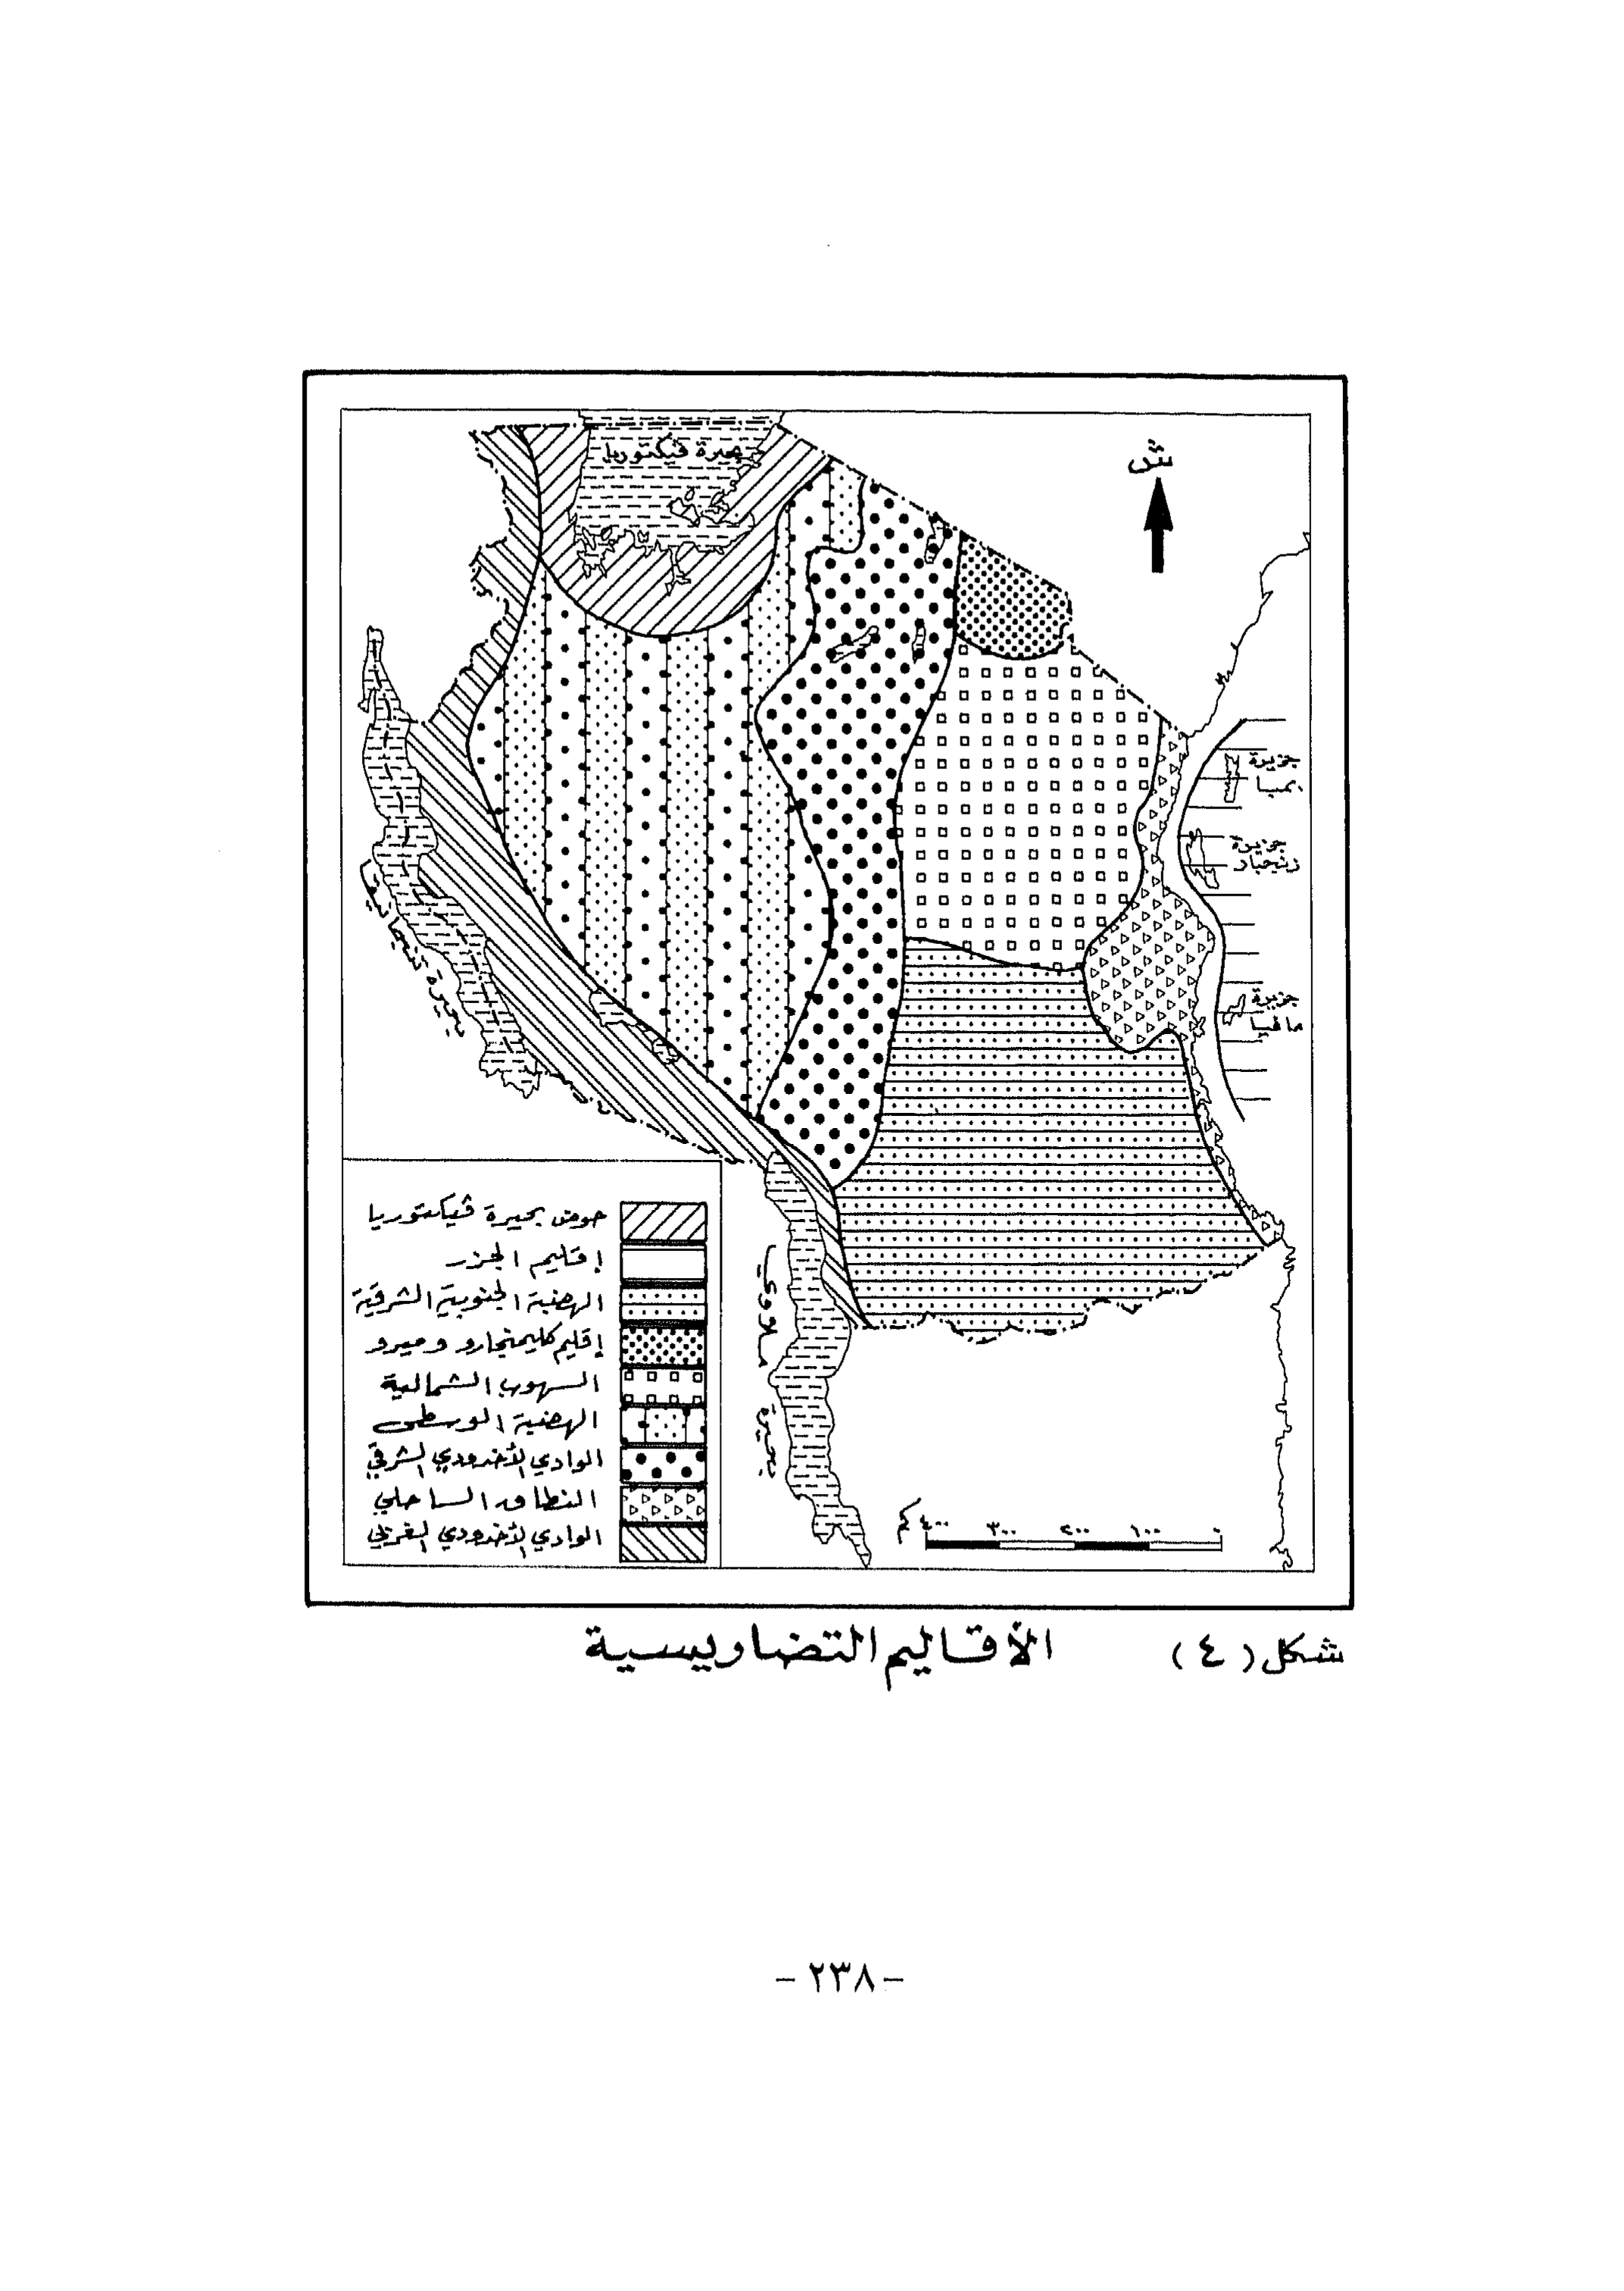 ش
بحيرة ڤيكتوريا
جزيرة
بمبا
جزيرة
زنجبار
جزيرة
مافيا
بحيرة تنجانيقا
بحيرة ملاوي
حوض بحيرة ڤيكتوريا
إقليم الجزر
الهضبة الجنوبية الشرقية
إقليم كليمنجارو وميرو
السهوب الشمالية
الهضبة الوسطى
الوادي الأخدودي الشرقي
النطاق الساحلي
الوادي الأخدودي الغربي
٠ ١٠٠ ٢٠٠ ٣٠٠ ٤٠٠ كم
شكل (٤) الأقاليم التضاريسية
- ٢٣٨ -